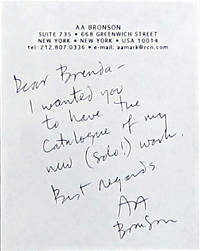 AA BRONSON
SUITE 735 • 668 GREENWICH STREET
NEW YORK • NEW YORK • USA 10014
tel: 212.807.0336 • e-mail: aamark@rcn.com
Dear Brenda –
I wanted you
to have the
catalogue of my
new (solo!) work.
Best regards
AA
Bronson